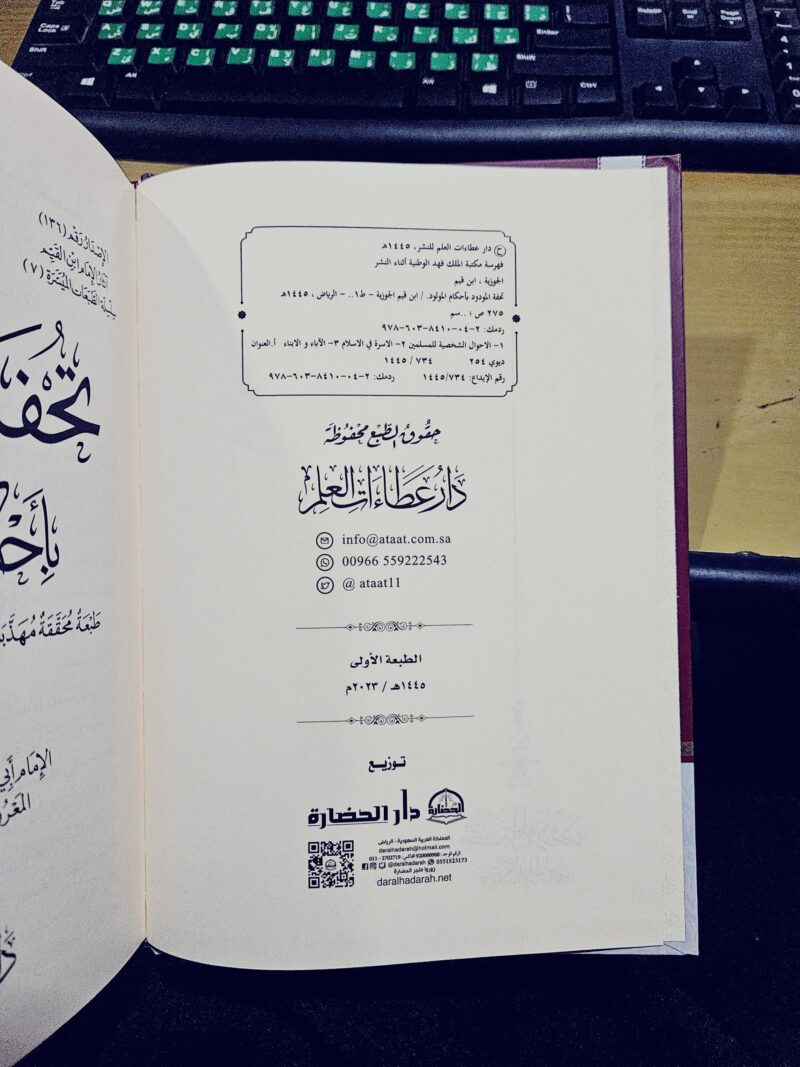 الإصدار رقم (١٣٦)
آثار الإمام ابن القيم
سلسلة الطبعات الميسرة (٧)
تُحْفَ
بِأَحْ
طَبْعَةٌ مُحَقَّقَةٌ مُهَذَّبَ
الإمام أبي
المعرو
ح دار عطاءات العلم للنشر، ١٤٤٥هـ
فهرسة مكتبة الملك فهد الوطنية أثناء النشر
الجوزية ، ابن قيم
تحفة المودود بأحكام المولود. / ابن قيم الجوزية - ط١.. - الرياض ، ١٤٤٥هـ
٢٧٥ ص ؛ ..سم
ردمك: ٢-٠٤-٨٤١٠-٦٠٣-٩٧٨
١- الاحوال الشخصية للمسلمين ٢- الاسرة في الاسلام ٣- الآباء و الابناء أ.العنوان
ديوي ٢٥٤ ٧٣٤ / ١٤٤٥
رقم الإيداع: ١٤٤٥/٧٣٤ ردمك: ٢-٠٤-٨٤١٠-٦٠٣-٩٧٨
حقوق الطبع محفوظة
دَارُ عَطَاءَاتِ العِلْمِ
info@ataat.com.sa
00966 559222543
@ ataat11
الطبعة الأولى
١٤٤٥هـ / ٢٠٢٣م
توزيع
الحضارة دار الحضارة
المملكة العربية السعودية - الرياض
daralhadarah@hotmail.com
الرقم الموحد: 920000908 فاكس: 2702719 - 011
@daralhadarah 0551523173
زوروا متجر الحضارة
daralhadarah.net